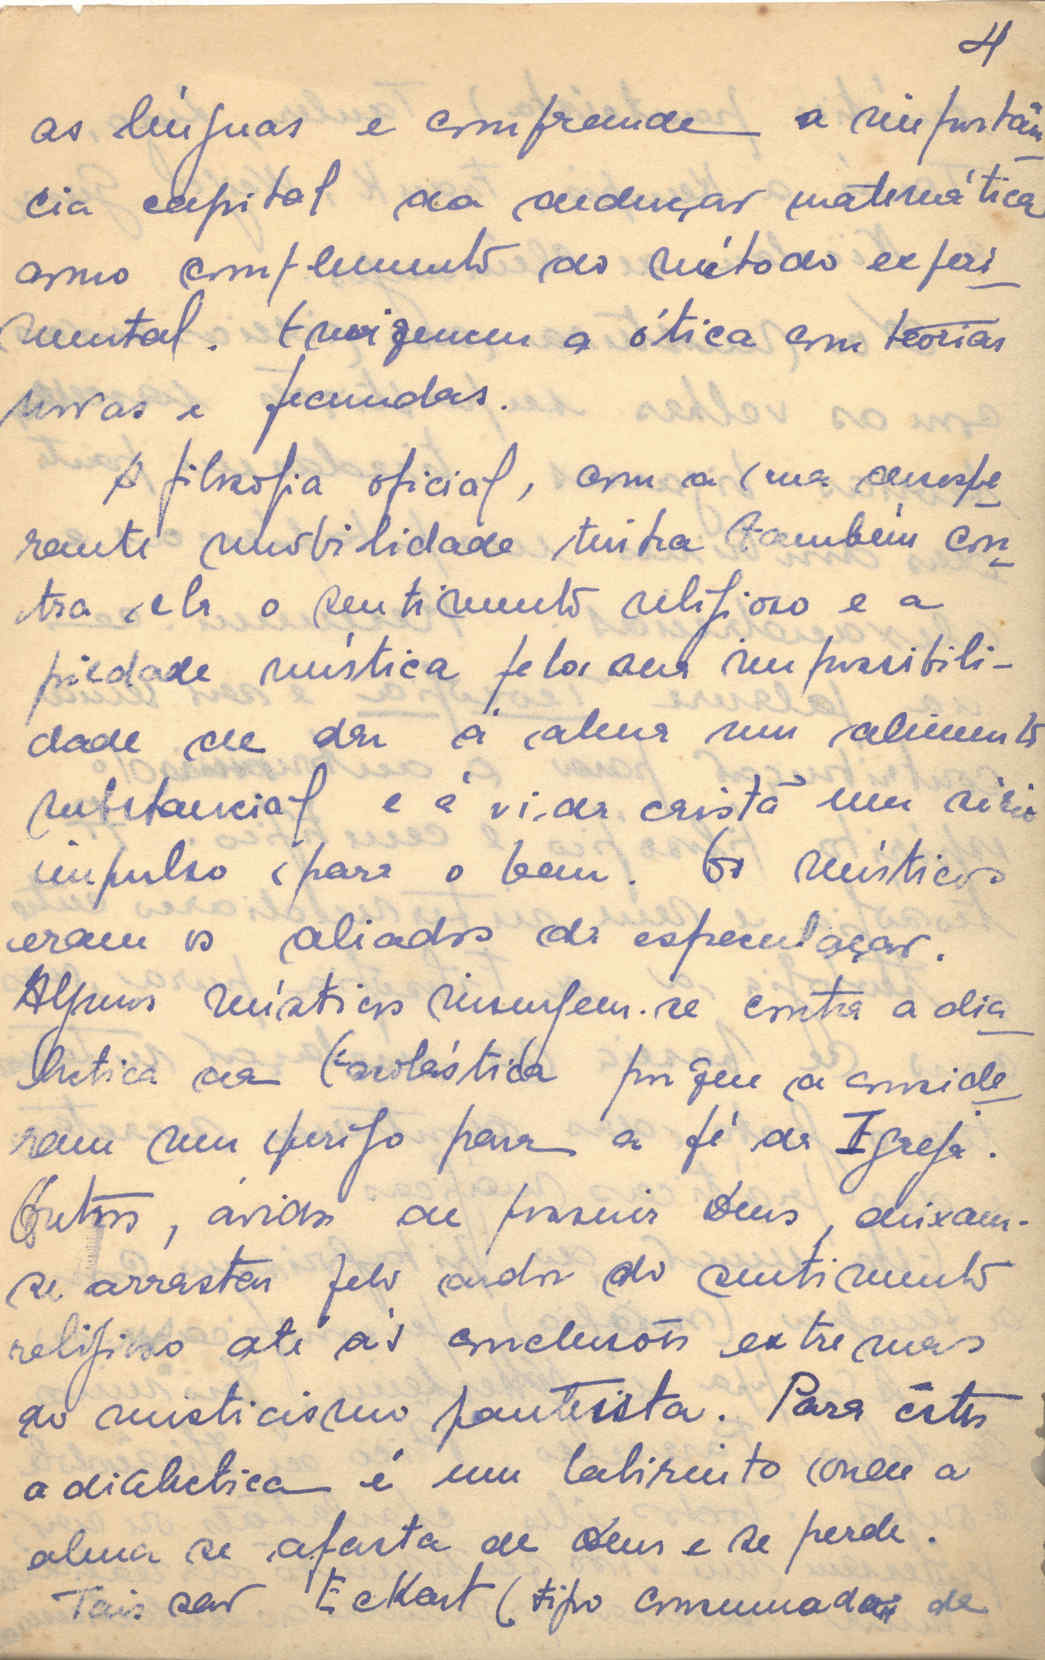 4
as línguas e compreende a importân
cia capital da dedução matemática
como complemento do método experi
mental. Enriquecem a ótica com teorias
novas e fecundas.
A filosofia oficial, com a sua desespe
rante imobilidade tinha também con
tra ela o sentimento religioso e a
piedade mística pela sua impossibili-
dade de dar à alma um alimento
substancial e à vida cristã um sério
impulso para o bem. Os místicos
eram os aliados da especulação.
Alguns místicos insurgem-se contra a dia
lectica da Escolástica porque a conside
ram um perigo para a fé da Igreja.
Outros, ávidos de possuir Deus, deixam-
se arrastar pelo ardor do sentimento
religioso até às conclusões extremas
do misticismo panteista. Para êstes
a dialectica é um labirinto onde a
alma se afasta de Deus e se perde.
Tais são Eckart (tipo consumado de